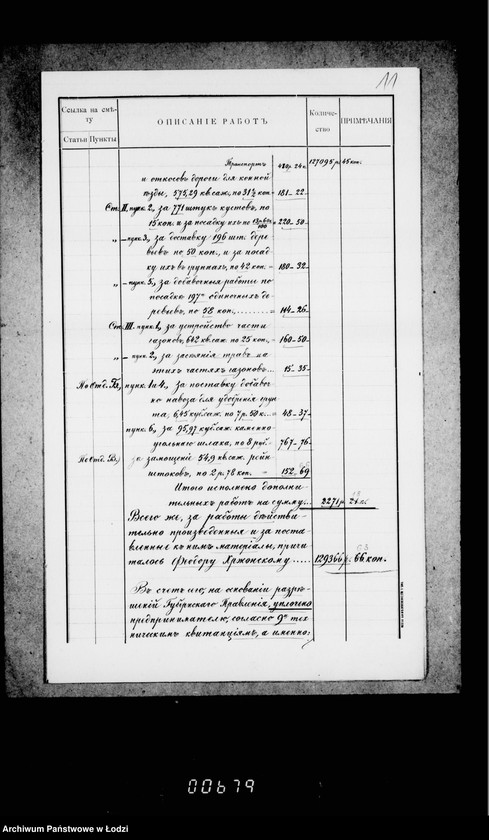 11
Ссылка на смѣ-
ту
Статьи Пункты
ОПИСАНІЕ РАБОТЪ
Количе-
ство
ПРИМѢЧАНІЯ
Транспортъ 127095 р. 45 коп.
и откосовъ дороги для конной
ѣзды, 575,29 кв. саж., по 31½ коп = 181-22
Ст. II. пунк. 2, за 771 штукъ кустовъ, по
15 коп. и за посадку ихъ по = 220-50
„ - пунк. 3, за доставку 196 шт. дере-
вьевъ по 50 коп., и за посад-
ку ихъ въ группахъ, по 42 коп. = 180-32
„ - пунк. 5, за добавочныя работы по
посадкѣ 197 одиночныхъ де-
ревьевъ, по 58 коп. = 114-26
Ст. III. пунк. 1, за устройство части
газоновъ, 642 кв. саж. по 25 коп. = 160-50
„ - пунк. 2, за засѣянія травъ на
этихъ частяхъ газоновъ 15-35
По Отд. Б, пунк. 1 и 4, за поставку добавоч-
но навоза для удобренія грун-
та, 6,45 куб. саж. по 7 р. 50 к. = 48-37
пунк. 6, за 95,97 куб. саж. каменно-
угольнаго шлака, по 8 руб. 767-76
По Отд. В, за замощеніе 54,9 кв. саж. рейн-
штоковъ, по 2 р. 78 коп. = 152,69
Итого исполнено дополни-
тельныхъ работъ на сумму: 2271 р. 24 к.
Всего же, за работы дѣйстви-
тельно произведенныя и за поста-
вленные къ нимъ матеріалы, причи-
талось Ѳеодору Аржонскому 129366 р. 66 коп.
Въ счетъ сего, на основаніи разрѣ-
шеній Губернскаго Правленія, уплочено
предпринимателю, согласно 9 тех-
ническимъ квитанціямъ, а именно:
00679
Archiwum Państwowe w Łodzi